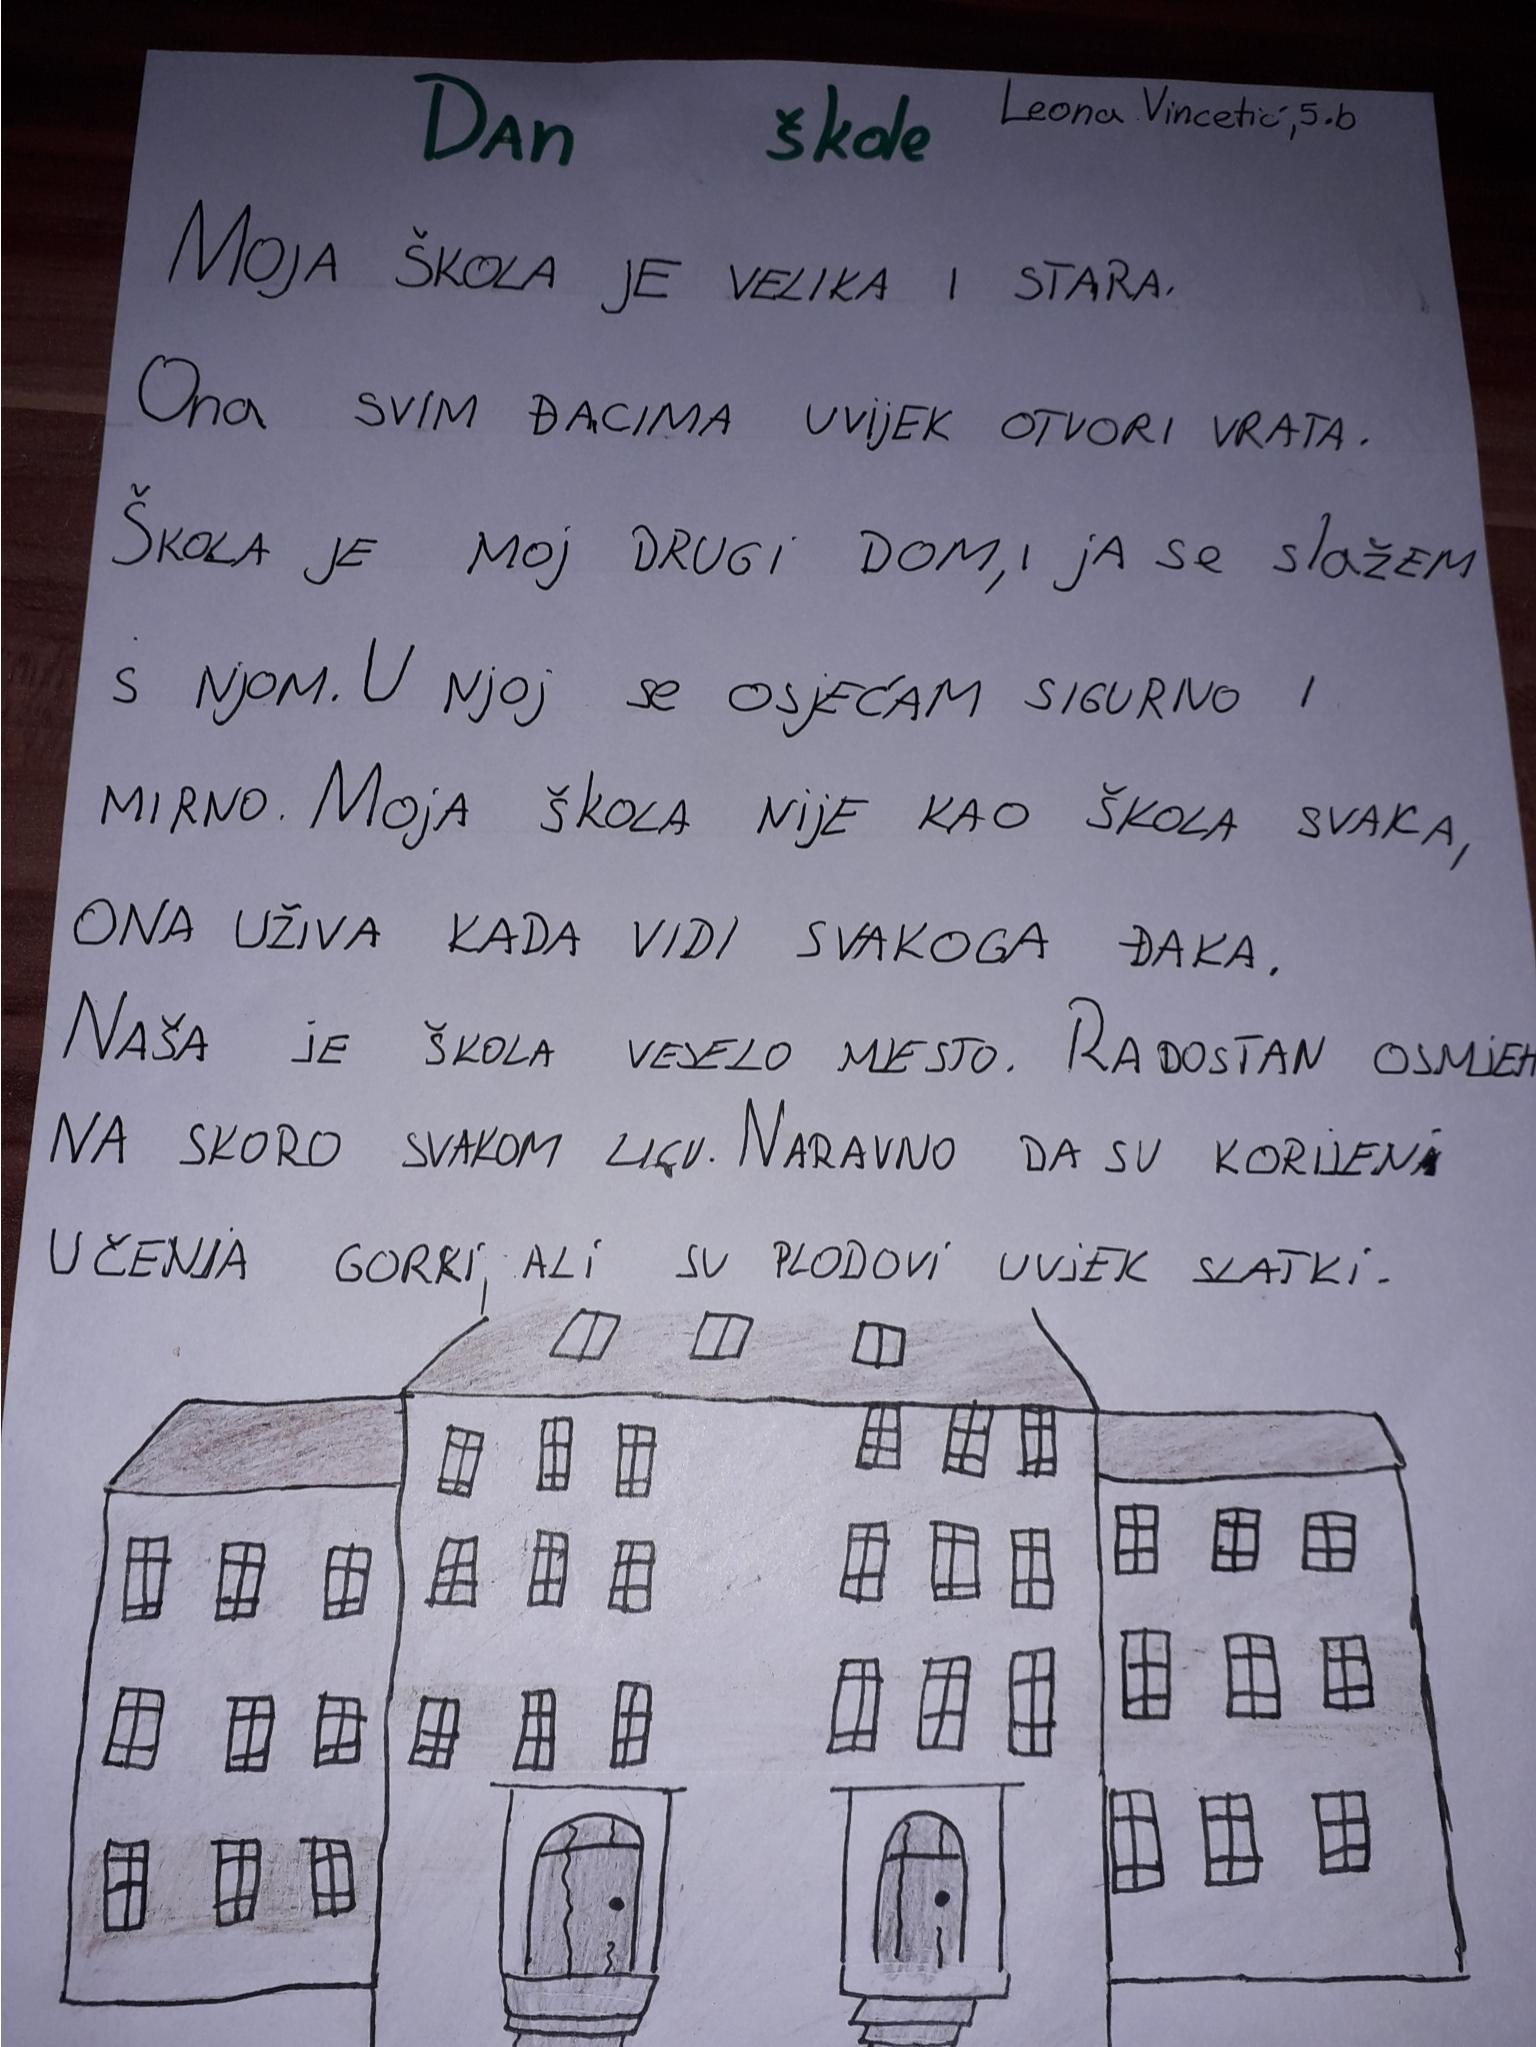 Dan škole
Leona Vincetić, 5.b
MOJA ŠKOLA JE VELIKA I STARA.
Ona SVIM ĐACIMA UVIJEK OTVORI VRATA.
ŠKOLA JE MOJ DRUGI DOM, I JA se slažEM
s NJOM. U NJOJ se OSJEĆAM SIGURNO I
MIRNO. MOJA ŠKOLA NIJE KAO ŠKOLA SVAKA,
ONA UŽIVA KADA VIDI SVAKOGA ĐAKA.
NAŠA JE ŠKOLA VESELO MJESTO. RADOSTAN OSMIJEH
NA SKORO SVAKOM LICU. NARAVNO DA SU KORIJENI
UČENJA GORKI, ALI SU PLODOVI UVIJEK SLATKI.